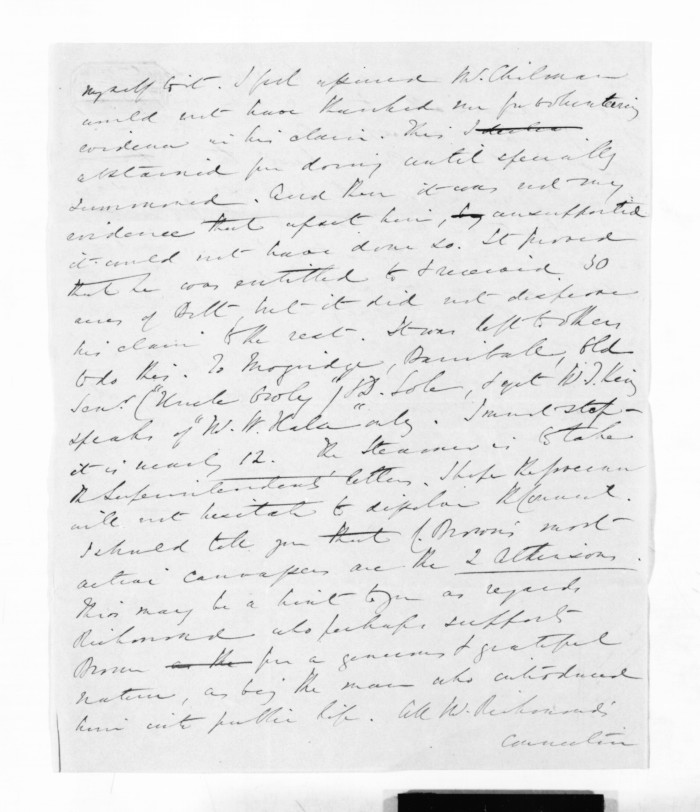 myself to it. I feel assured Mr. Chilman
would not have thanked me for volunteering
evidence in his claim. This I
abstained from doing until specially
summoned. And then it was not my
evidence that upset him, by unsupported
it could not have done so. It proved
that he was entitled to & received 30
acres of Bell, but it did not disprove
his claim to the rest. It was left to others
to do this. To Mogridge, Old
("Uncle , & yet W. J. King
speaks of "W. W. Hala" only. I must stop -
it is nearly 12. The Steamer is to take
the Superintendents' letters. I hope the
will not hesitate to dissolve the Council.
I should tell you that C. Brown's most
active canvassers are the 2 Atkinsons.
This may be a hint to you as regards
Richmond who perhaps supports
Brown as the for a generous & grateful
nature, as being the man who introduced
him into public life. All Mr. Richmond's
connection